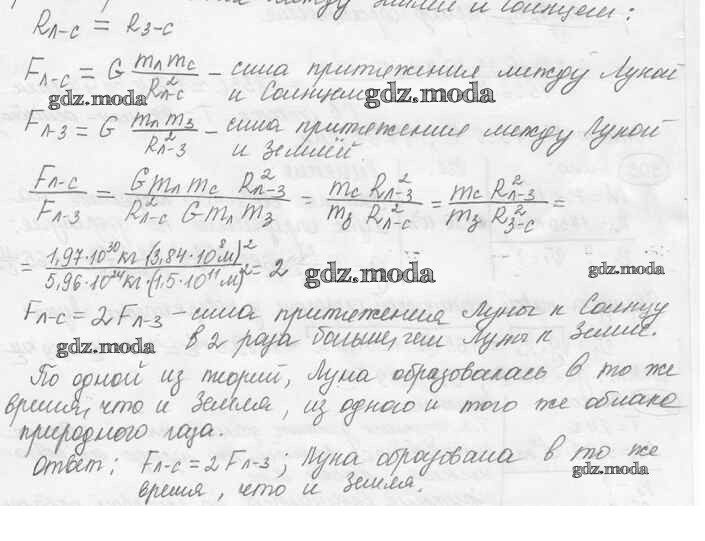 между Землей и Солнцем:
Rл-с = Rз-с
Fл-с = G mл mс / R²л-с – сила притяжения между Луной
и Солнцем
gdz.moda
gdz.moda
Fл-з = G mл mз / R²л-з – сила притяжения между Луной
и Землёй
Fл-с / Fл-з = G mл mс R²л-з / R²л-с G mл mз = mс R²л-з / mз R²л-с = mс R²л-з / mз R²з-с =
= 1,97·10³⁰кг·(3,84·10⁸м)² / 5,96·10²⁴кг·(1,5·10¹¹м)² = 2
gdz.moda
gdz.moda
Fл-с = 2Fл-з – сила притяжения Луны к Солнцу
в 2 раза больше, чем Луны к Земле.
gdz.moda
По одной из теорий, Луна образовалась в то же
время, что и Земля, из одного и того же облака
природного газа.
Ответ: Fл-с = 2Fл-з; Луна образована в то же
gdz.moda
время, что и Земля.